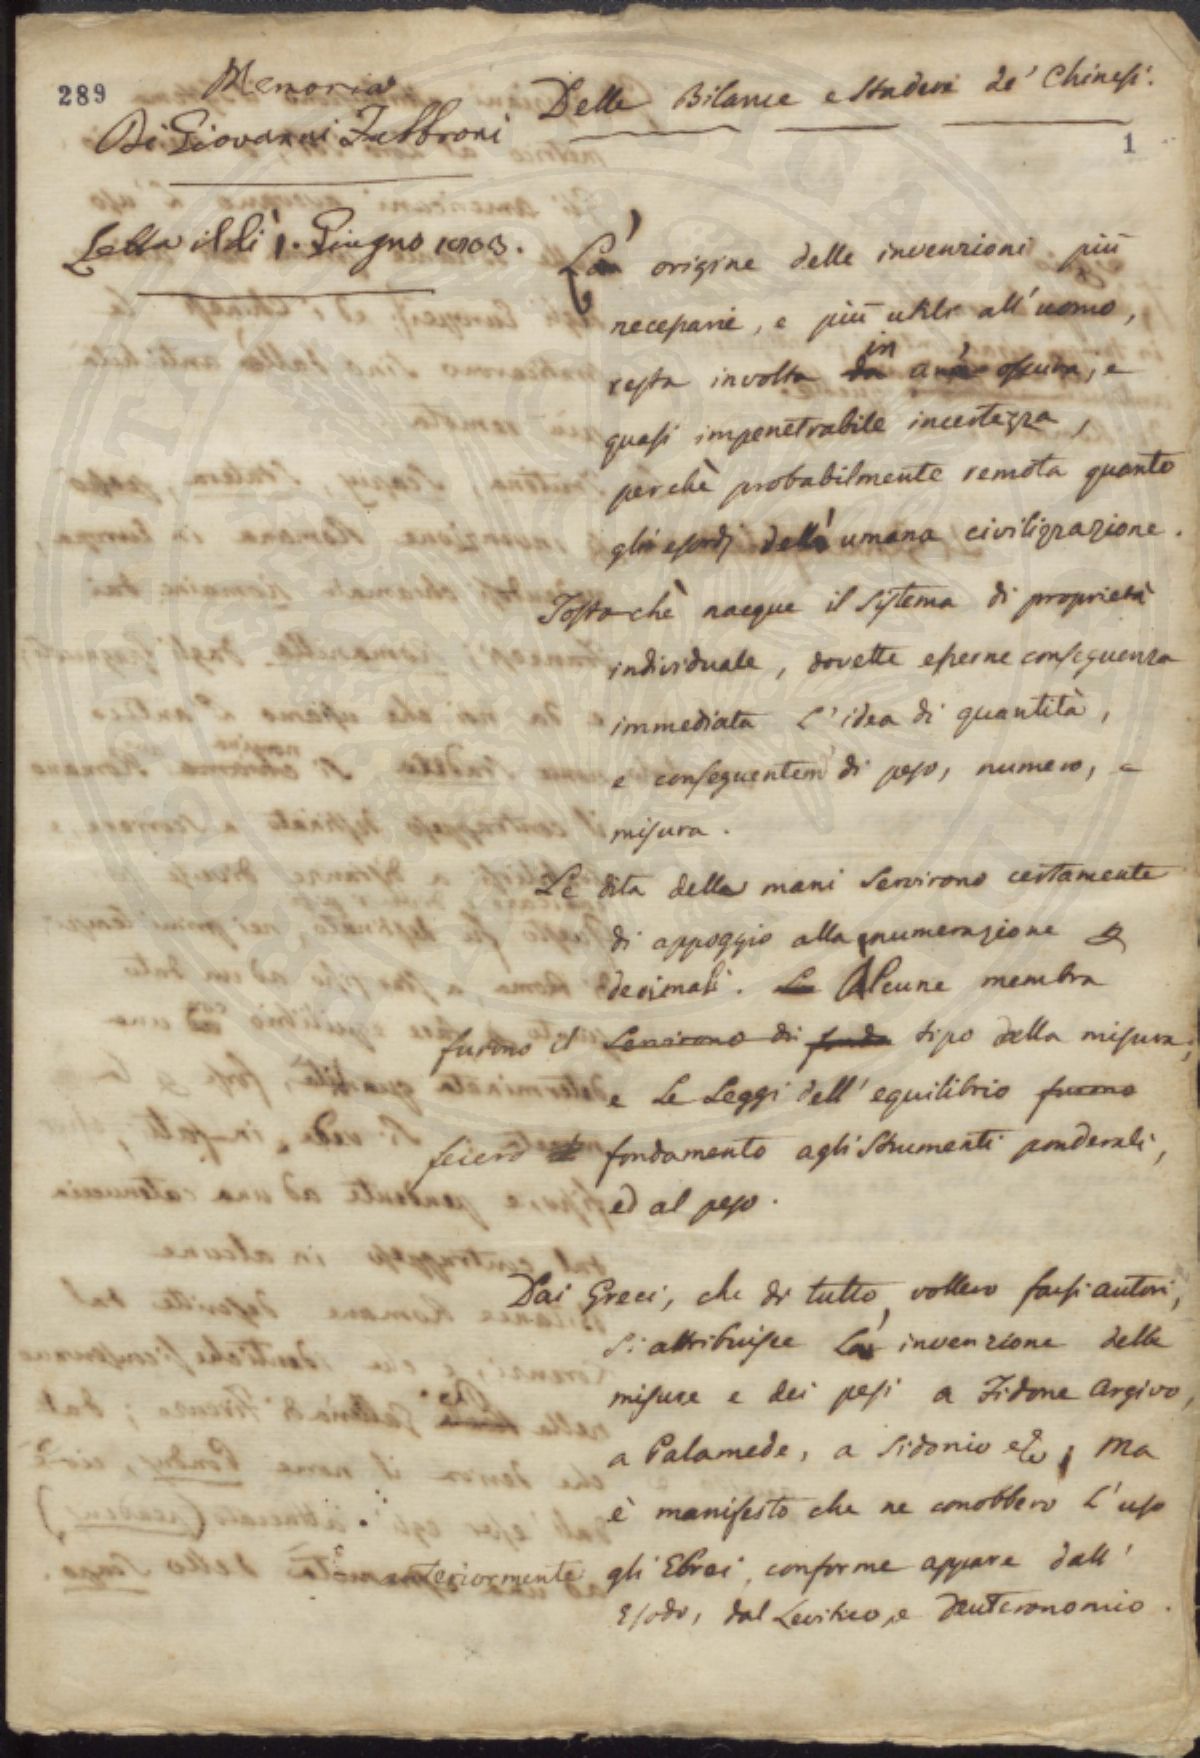 289
Memoria
Di Giovanni Fabbroni
Letta il dì 1. Giugno 1803.
Delle Bilance e Stadere de' Chinesi.
1
L' origine delle invenzioni più
necessarie, e più utili all' uomo,
resta involta in oscura, e
quasi impenetrabile incertezza,
perchè probabilmente remota quanto
gli esordj dell' umana civilizzazione.
Tosto chè nacque il sistema di proprietà
individuale, dovette esserne conseguenza
immediata l' idea di quantità,
e conseguentem di peso, numero, e
misura.
Le dita delle mani servirono certamente
di appoggio alla numerazione
decimale. Alcune membra
furono il servirono di tipo della misura;
e le Leggi dell' equilibrio furono
fecero fondamento agli strumenti ponderali,
ed al peso.
Dai Greci, che di tutto vollero farsi autori,
si attribuisce l' invenzione delle
misure e dei pesi a Fidone Argivo,
a Palamede, a Sidonio etc; Ma
è manifesto che ne conobbero l' uso
anteriormente gli Ebrei, conforme appare dall'
Esodo, dal Levitico, e Deuteronomio.